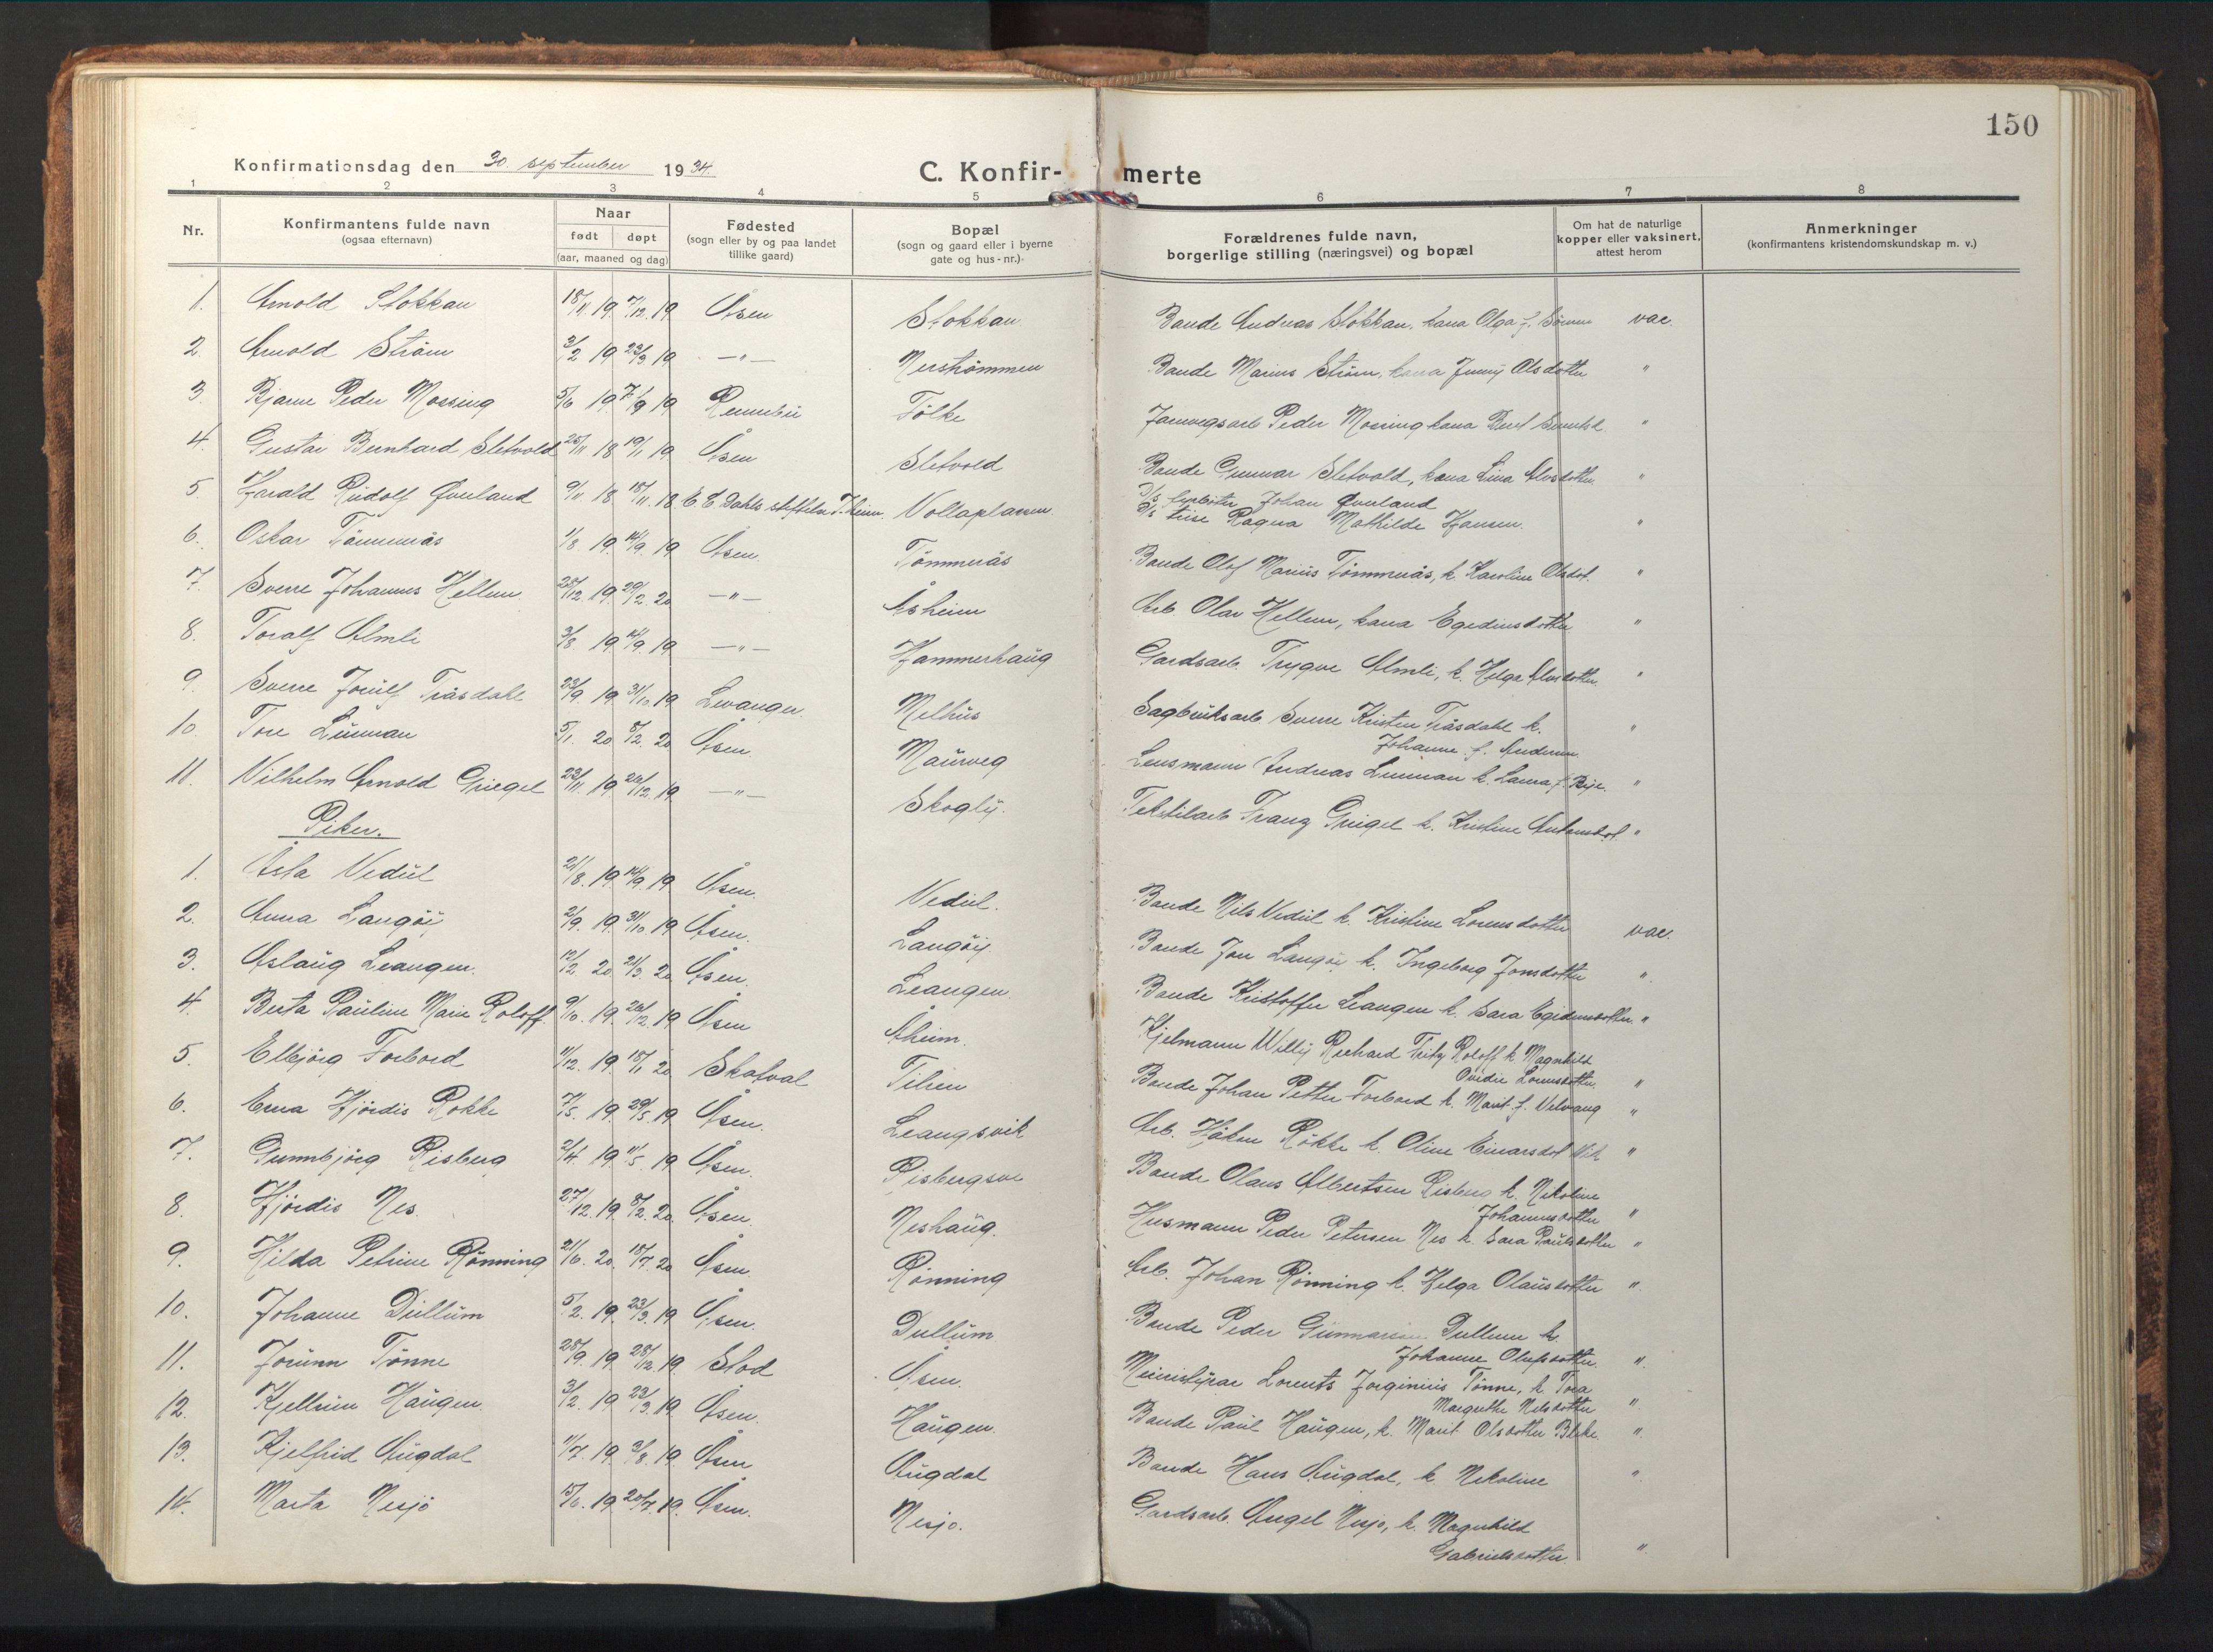 150
Konfirmationsdag den 30. september 1934.
C. Konfir- merte
1 2 3 4 5 6 7 8
Nr.
Konfirmantens fulde navn
(ogsaa efternavn)
Naar
født døpt
(aar, maaned og dag)
Fødested
(sogn eller by og paa landet
tillike gaard)
Bopæl
(sogn og gaard eller i byerne
gate og hus-nr.)
Forældrenes fulde navn,
borgerlige stilling (næringsvei) og bopæl
Om hat de naturlige
kopper eller vaksinert,
attest herom
Anmerkninger
(konfirmantens kristendomskundskap m. v.)
1. Arnold Stokkan 18/11 19 7/12 19 Åsen Stokkan Bonde Andreas Stokkan, kona Olga f. vac.
2. Arnold Strøm 3/2 19 23/3 19 —"— Nerstrømmen Bonde Marius Strøm, kona Jenny Olsdotter "
3. Bjarne Peder Mossing 5/6 19 7/9 19 Rennebu Fölke Jarnvegsarb Peder Mossing kona "
4. Gustav Bernhard Sletvold 25/11 18 19/1 19 Åsen Sletvold Bonde Gunnar Sletvold, kona Lina "
5. Harald Rudolf Øverland 9/11 18 18/11 18 E. C. Dahls stiftelse T.heim Vollaplassen Johan Øverland
Ragna Mathilde Hansen. "
6. Oskar Tömmerås 1/8 19 14/9 19 Åsen. Tömmerås Bonde Olaf Marius Tömmerås, k. Karoline Olsdot. "
7. Sverre Johannes Hellem 28/12 19 29/2 20 —"— Åsheim Arb Olav Hellem, kona Egediusdotter "
8. Toralf Almli 3/8 19 14/9 19 —"— Hammerhaug Gardsarb. Trygve Almli, k. Helga "
9. Sverre Jorulf Tråsdahl 23/9 19 31/10 19 Levanger. Melhus Sagbruksarb Sverre Kristen Tråsdahl k.
Johanne f. "
10. Tore Linman 5/1 20 8/2 20 Åsen Maurveg Lensmann Andreas Linman k. Laura f. "
11. Vilhelm Arnold Griegel 23/11 19 26/12 19 —"— Skogly. Tekstilarb Franz Griegel k. Kristine "
Piker.
1. Åsta Vedul 21/8 19 14/9 19 Åsen. Vedul. Bonde Nils Vedul k. Kristine Lorensdotter vac.
2. Anna Langöy 2/9 19 31/10 19 Åsen. Langöy. Bonde Jon Langöy k. Ingeborg Jonsdotter "
3. Aslaug Leangen. 12/2 20 21/3 20 Åsen. Leangen Bonde Kristoffer Leangen k. Sara Egediusdotter "
4. Berta Pauline Marie Roloff 9/10 19 26/12 19 Åsen Åheim. Willy Richard Fritz Roloff k. Magnhild
Ovidie Lorensdotter. "
5. Elbjörg Forbord 11/12 19 18/1 20 Skatval Bonde Johan Petter Forbord k. Marit f. Velvang "
6. Erna Hjördis Rokke 7/5 19 29/5 19 Åsen. Leangsvik Arb. Håkon Rökke k. Oline Einarsdot "
7. Gunnbjörg Risberg 2/4 19 11/5 19 Åsen. Risbergsve Bonde Olaus Albertsen Risberg k. Nikoline
Johannesdotter "
8. Hjördis Nes. 27/12 19 8/2 20 Åsen. Neshaug. Husmann Peder Petersen Nes k. Sara Paulsdotter "
9. Hilda Petrine Rönning 21/6 20 18/7 20 Åsen. Rönning Arb. Johan Rönning k. Helga Olausdotter "
10. Johanne Dullum 5/2 19 23/3 19 Åsen. Dullum Bonde Peder Dullum k.
Johanne Olufsdotter. "
11. Jorunn Tönne 28/9 19 28/12 19 Stod Åsen. Meieristyrar Lorents Jorginius Tönne, k. Tora
Margrethe Nilsdotter "
12. Kjellrun Haugen 3/2 19 23/3 19 Åsen. Haugen. Bonde Paul Haugen, k. Marit Olsdotter "
13. Kjelfrid Augdal 11/7 19 3/8 19 Åsen Augdal Bonde Hans Augdal, k. Nikoline "
14. Marta Nesjö 15/6 19 20/7 19 Åsen. Nesjo. Gardsarb. Angel Nesjo, k. Magnhild
Gabrielsdotter "